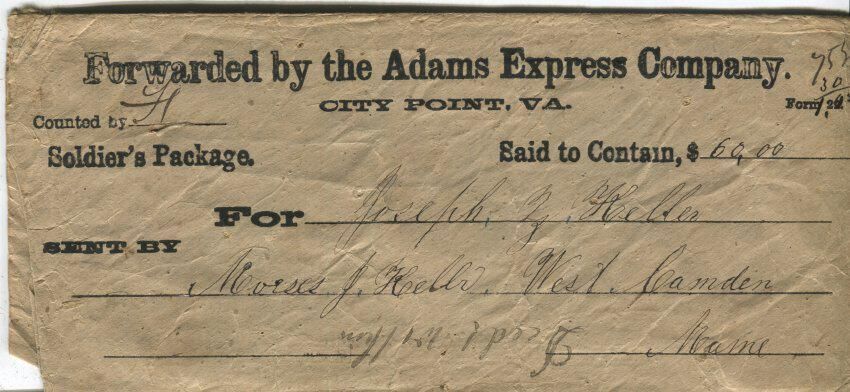 Forwarded by the Adams Express Company.
CITY POINT, VA.
Form
Counted by H
Soldier's Package.
Said to Contain, $ 60,00
For Joseph Z. Keller
SENT BY
Moises J. Keller. West Camden
Maine